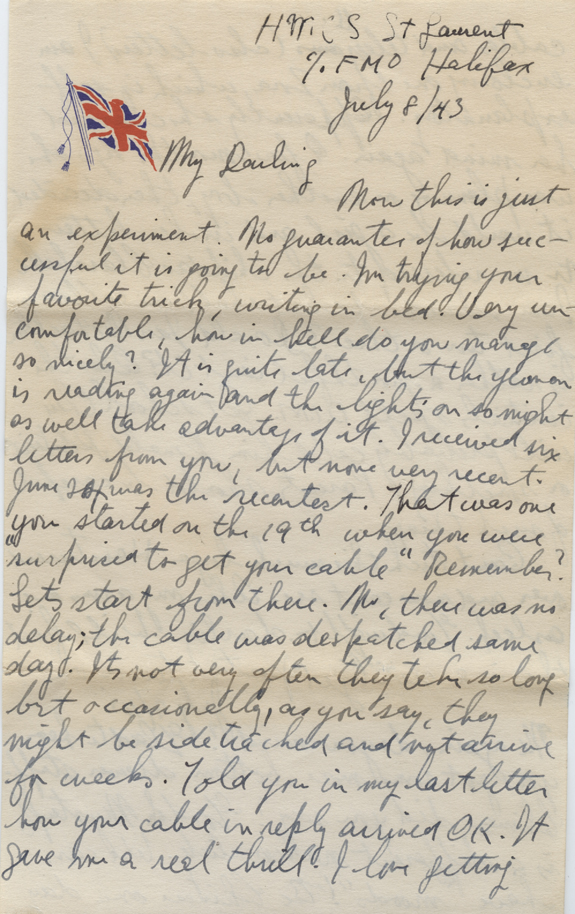 HMCS St Laurent
% FMO Halifax
July 8/43
My Darling
Now this is just
an experiment. No guarantee of how suc-
cessful it is going to be. Im trying your
favorite trick, writing in bed. Very un-
comfortable, how in hell do you manage
so nicely? It is quite late, but the yeoman
is reading again and the lights on so might
as well take advantage of it. I received six
letters from you, but none very recent.
June was the recentest. That was one
you started on the 19th when you were
"surprised to get your cable" Remember?
Lets start from there. No, there was no
delay; the cable was despatched same
day. Its not very often they take so long
but occasionally, as you say, they
might be sidetracked and not arrive
for weeks. Told you in my last letter
how your cable in reply arrived OK. It
gave me a real thrill. I love getting